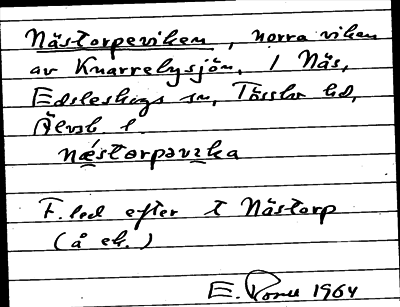 Nästorpeviken, norra viken
av Knarrebysjön, i Näs,
Edsleskogs sn, Tössbo hd,
Älvsb. l.
næstorpavika
F. led efter t Nästorp
(å ek.)
E. 1964